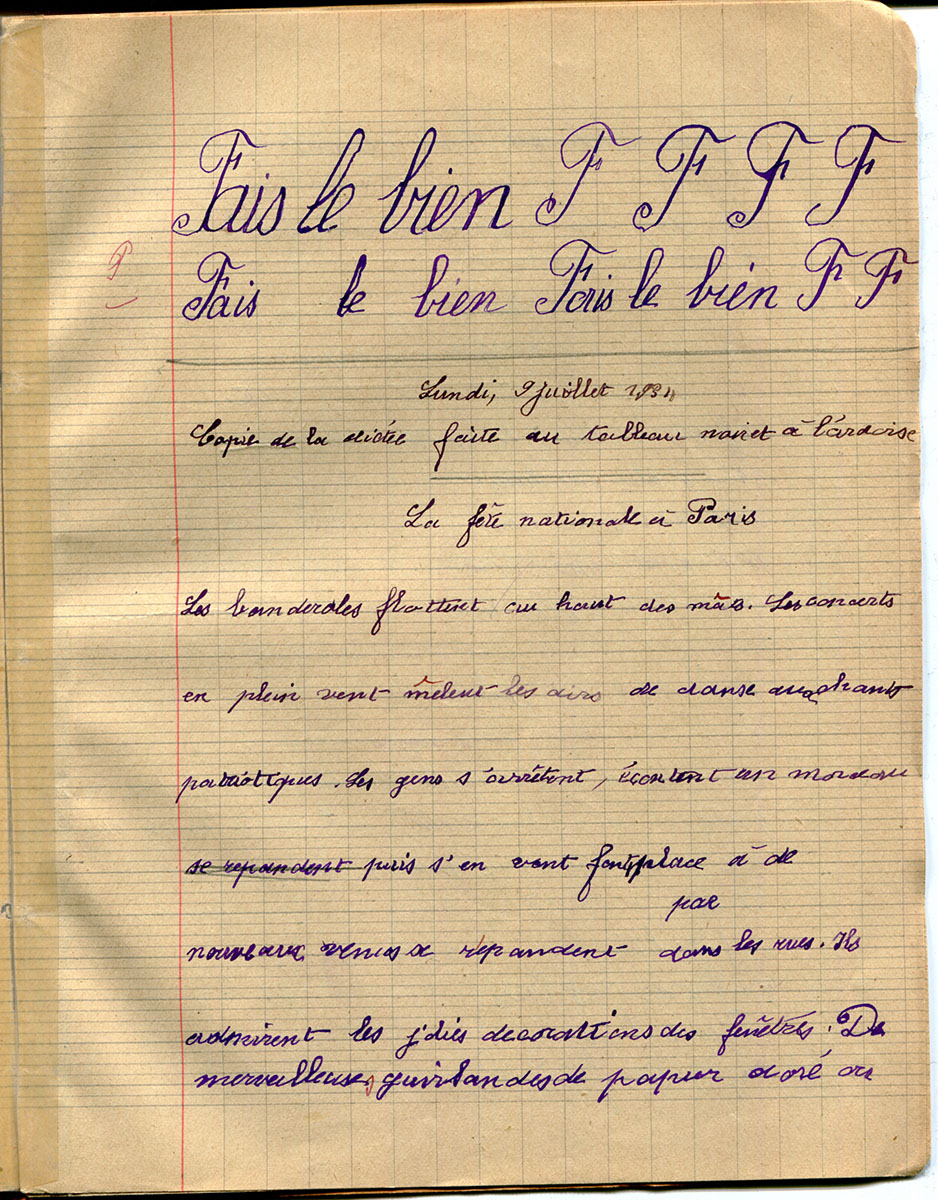 Fais le bien F F F F
Fais le bien Fais le bien F F
Lundi, 9 juillet 1934
Copie de la dictée faite au tableau noir et à l'ardoise
La fête nationale à Paris
Les banderoles flottent au haut des mâts. Les concerts
en plein vent mêlent les airs de danse aux chants
patriotiques. Les gens s'arrêtent, écoutent un morceau
se repandent puis s'en vont font place à de
par
nouveaux venus se répandent dans les rues. Ils
admirent les jolies decorations des fenêtres. De
merveilleuses guirlandes de papier doré ou